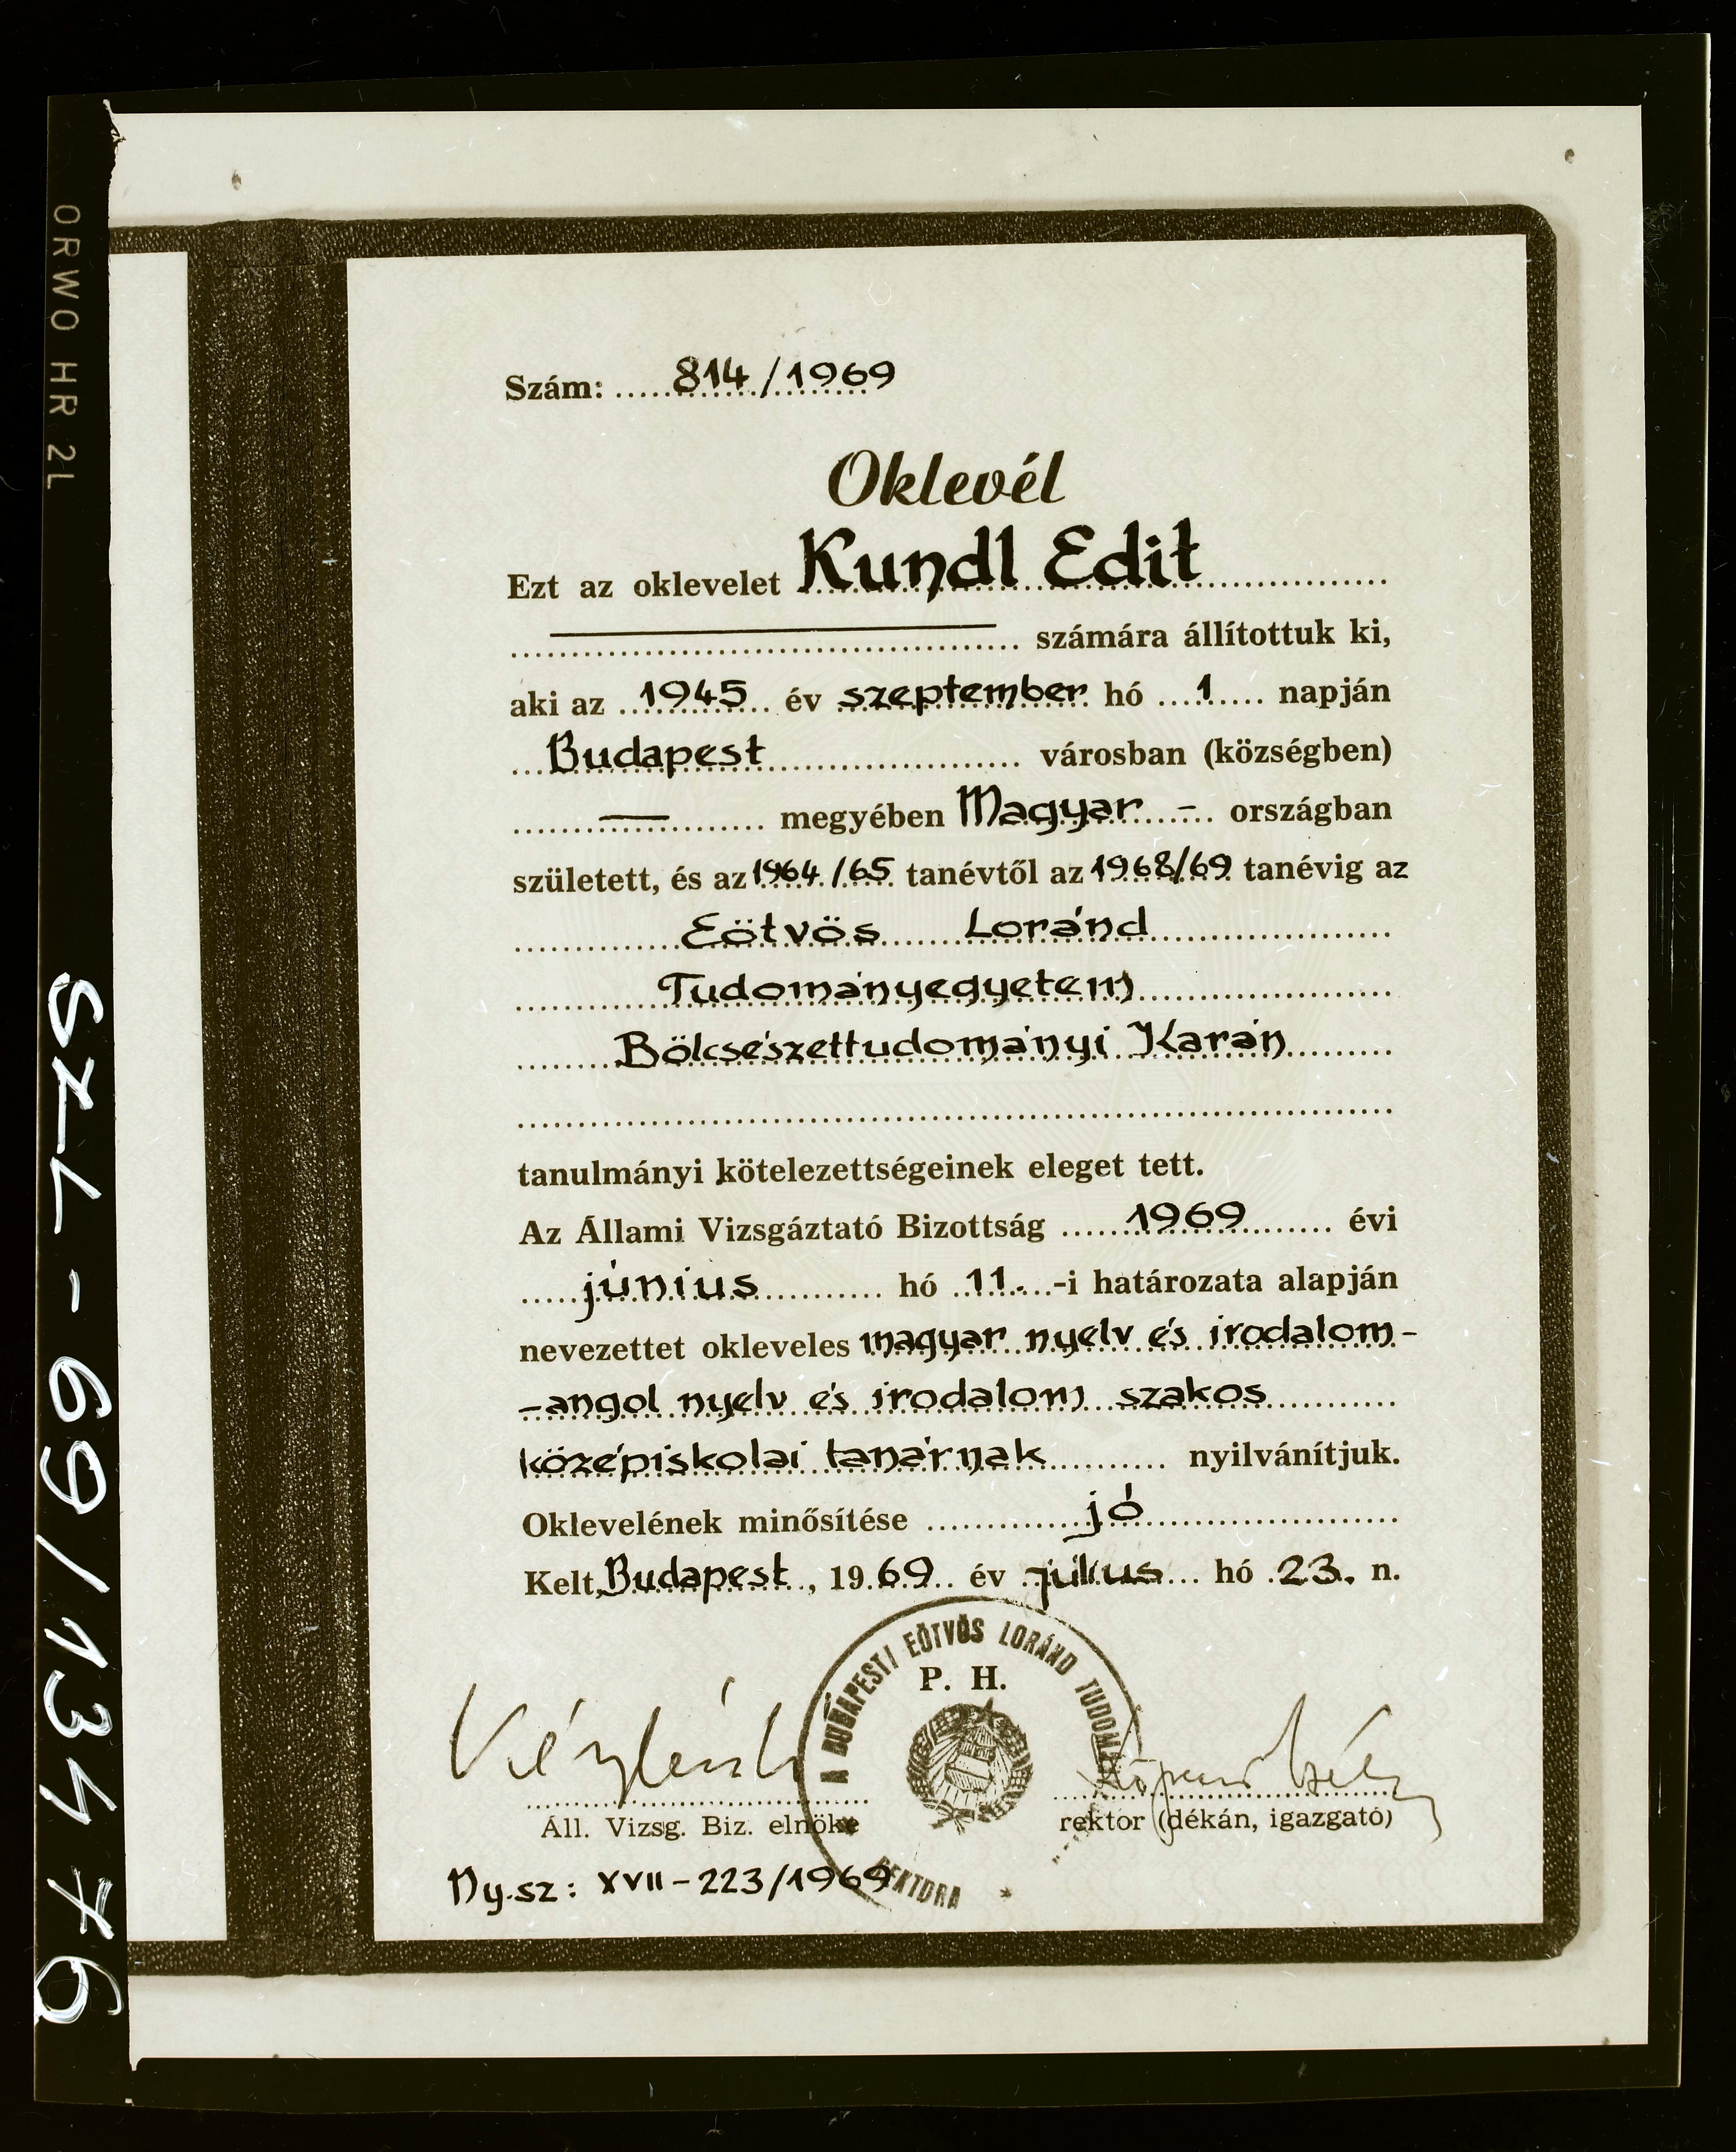 ORWO HR 2L
SZL-69/13476
Szám: 814/1969
Oklevél
Ezt az oklevelet Kundl Edit
számára állítottuk ki,
aki az 1945 év szeptember hó 1 napján
Budapest városban (községben)
— megyében Magyar - országban
született, és az 1964/65 tanévtől az 1968/69 tanévig az
Eötvös Loránd
Tudományegyetem
Bölcsészettudományi Karán
tanulmányi kötelezettségeinek eleget tett.
Az Állami Vizsgáztató Bizottság 1969 évi
június hó 11.-i határozata alapján
nevezettet okleveles magyar nyelv és irodalom-
-angol nyelv és irodalom szakos
középiskolai tanárnak nyilvánítjuk.
Oklevelének minősítése jó
Kelt, Budapest, 1969 év július hó 23. n.
A BUDAPESTI EÖTVÖS LORÁND TUDOM
P. H.
REKTORA
Áll. Vizsg. Biz. elnöke
rektor (dékán, igazgató)
Ny.sz: XVII-223/1969